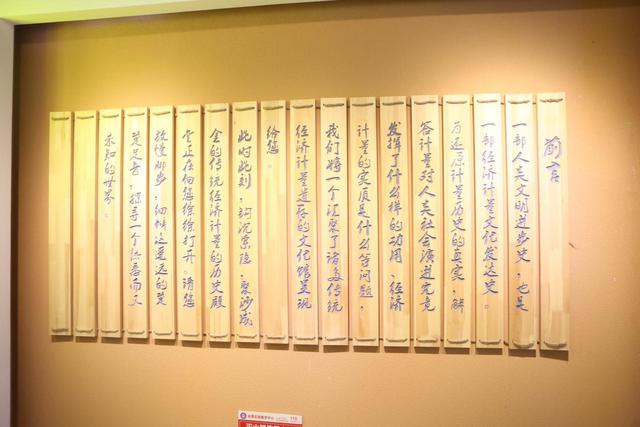 前言
一部人类文明进步史，也是
一部经济计量文化发达史。
为还原计量历史的真实，解
答计量对人类社会演进究竟
发挥了什么样的功用，经济
计量的实质是什么等问题，
我们将一个汇聚了诸多传统
经济计量遗存的文化馆呈现
给您。
此时此刻，钩沉索隐，聚沙成
金的传统经济计量的历史殿
堂正在向您徐徐打开。请您
放慢脚步，细倾这遥远的跫
跫足音，探寻一个熟悉而又
未知的世界。